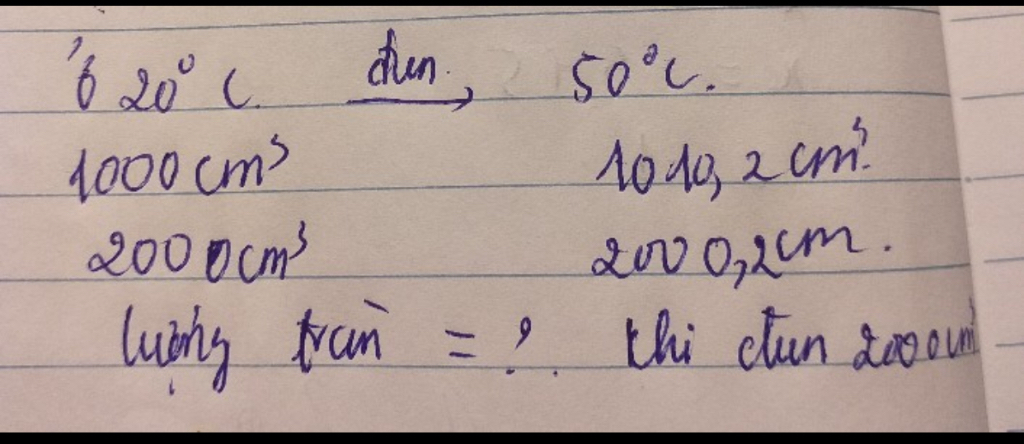 ở 20°C. đun. → 50°C.
1000 cm³ 1010,2 cm³.
2000 cm³ 2000,2 cm.
lượng tràn = ? khi đun 2000cm³